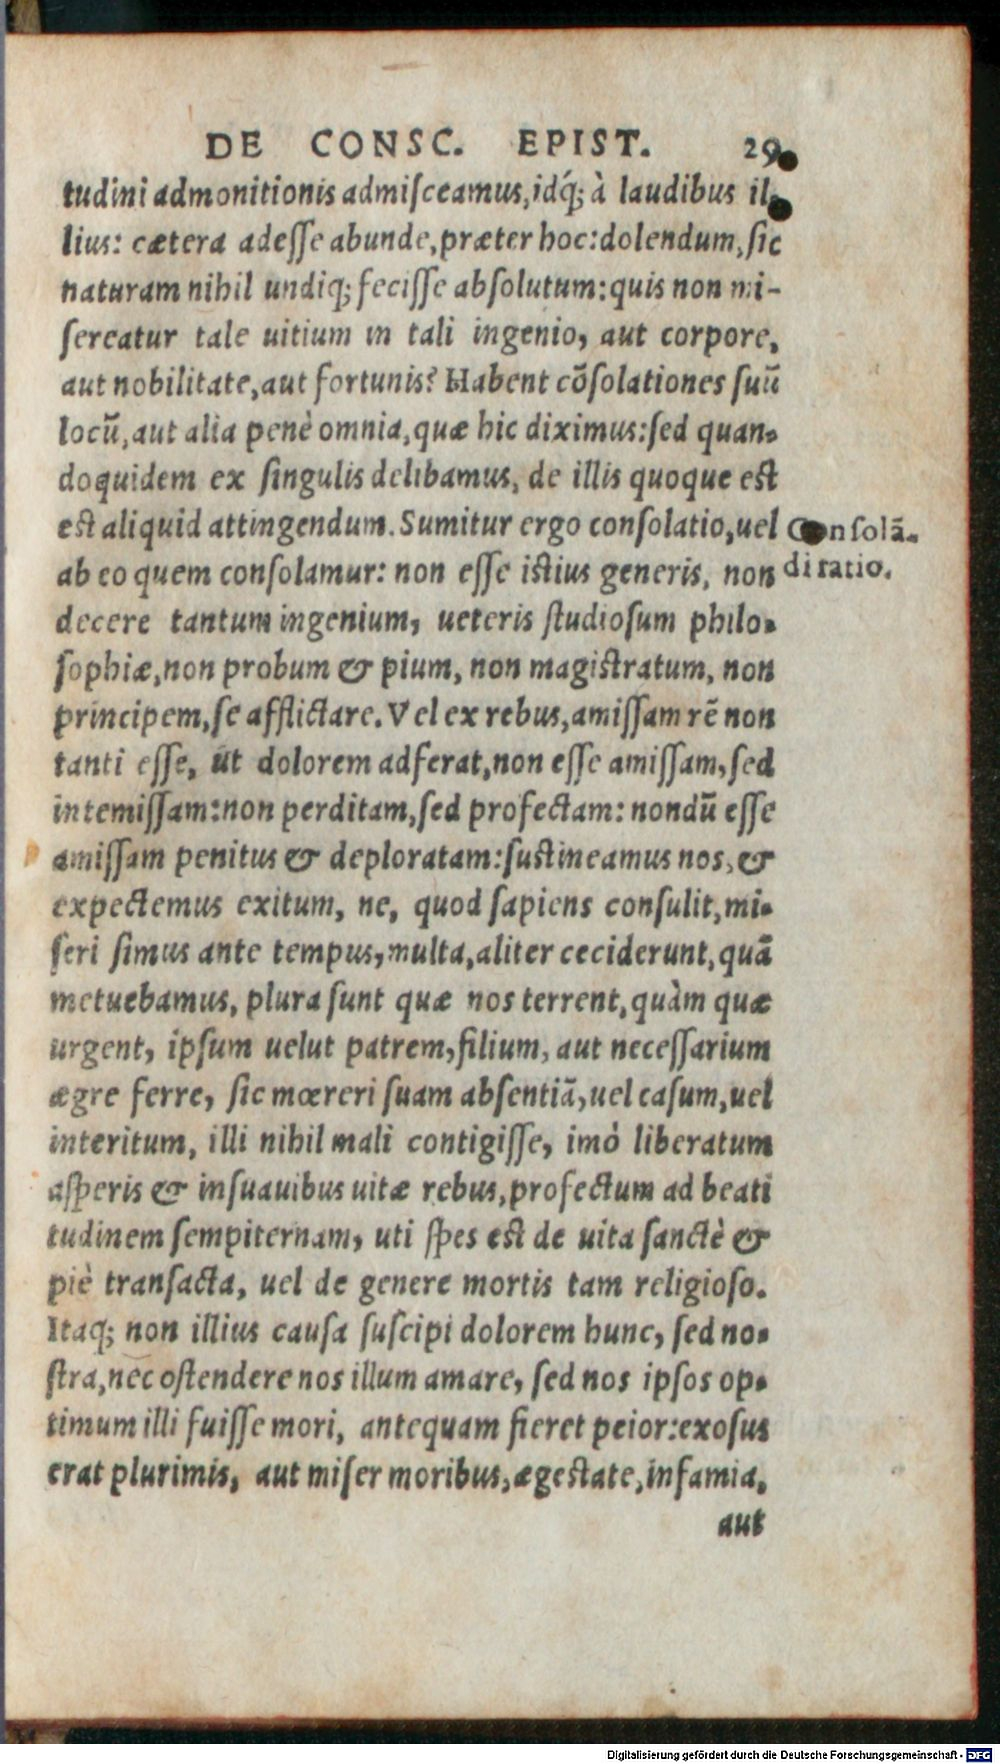 DE CONSC. EPIST. 29
tudini admonitionis admiſceamus, idq́; à laudibus il-
lius: cætera adeſſe abunde, præter hoc: dolendum, ſic
naturam nihil undiq; feciſſe abſolutum: quis non mi-
ſereatur tale uitium in tali ingenio, aut corpore,
aut nobilitate, aut fortunis? Habent cõſolationes ſuũ
locũ, aut alia penè omnia, quæ hic diximus: ſed quan-
doquidem ex ſingulis delibamus, de illis quoque est
est aliquid attingendum. Sumitur ergo conſolatio, uel
Conſolã-
di ratio.
ab eo quem conſolamur: non eſſe istius generis, non
decere tantum ingenium, ueteris ſtudioſum philo-
ſophiæ, non probum & pium, non magistratum, non
principem, ſe afflictare. Vel ex rebus, amiſſam rẽ non
tanti eſſe, ut dolorem adferat, non eſſe amiſſam, ſed
intemiſſam: non perditam, ſed profectam: nondũ eſſe
amiſſam penitus & deploratam: ſustineamus nos, &
expectemus exitum, ne, quod ſapiens conſulit, mi-
ſeri ſimus ante tempus, multa, aliter ceciderunt, quã
metuebamus, plura ſunt quæ nos terrent, quàm quæ
urgent, ipſum uelut patrem, filium, aut neceſſarium
ægre ferre, ſic mœreri ſuam abſentiã, uel caſum, uel
interitum, illi nihil mali contigiſſe, imò liberatum
aſperis & inſuauibus uitæ rebus, profectum ad beati
tudinem ſempiternam, uti ſpes est de uita ſanctè &
piè transacta, uel de genere mortis tam religioſo.
Itaq; non illius cauſa ſuſcipi dolorem hunc, ſed no-
ſtra, nec oſtendere nos illum amare, ſed nos ipſos op-
timum illi fuiſſe mori, antequam fieret peior: exoſus
erat plurimis, aut miſer moribus, ægestate, infamia,
aut
Digitalisierung gefördert durch die Deutsche Forschungsgemeinschaft - DFG